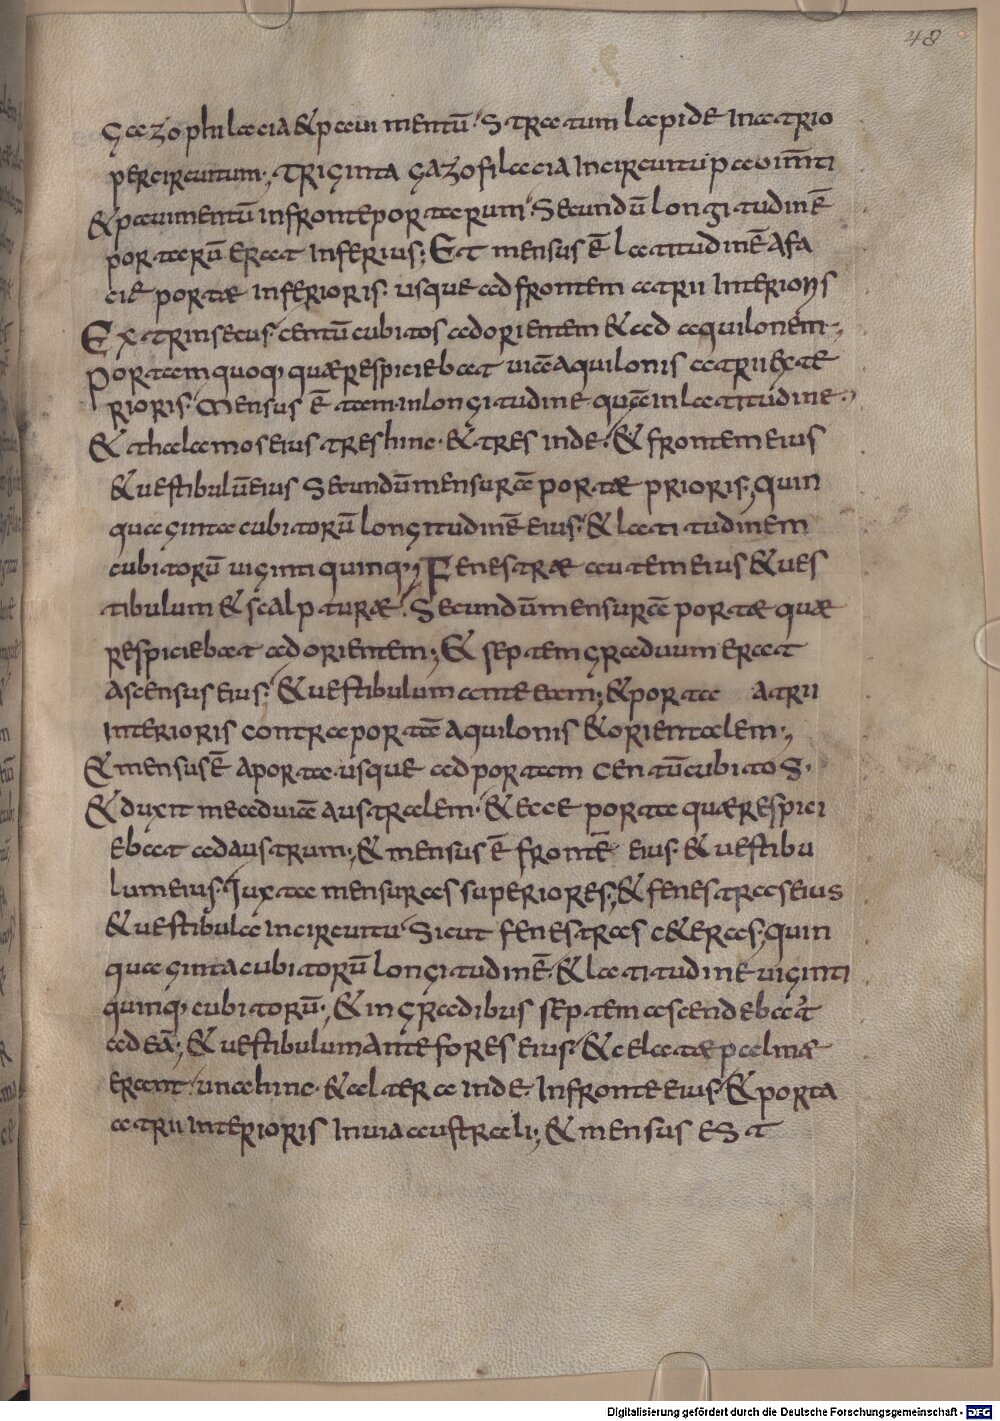 48
gazophilacia & pauimentū. Stratum lapide In atrio
percircuitum; Triginta gazofilacia Incircuitu pauim̄ti
& pauimentū infronteportarum. Secundū longitudinē
portarū erat Inferius; Et mensus ē latitudinē afa
ciē portae inferioris. usque adfrontem atrii Interioris
Extrinsecus. centū cubitos adorientem & ad aquilonem;
Portam quoq; quaerespiciebat uiāaquilonis atrii exte
rioris. Mensus ē tam.inlongitudine quāinlatitudine;
& thalamos eius. treshinc. & tres inde. & frontemeius
& uestibulūeius Secundūmensurā portae prioris; quin
quaginta cubitorū longitudinē eius. & latitudinem
cubitorū uigintiquinq;; Fenestrae autem eius & ues
tibulum & scalpturae. Secundūmensurā portae quae
respiciebat adorientem; & septem graduum erat
Ascensus eius. & uestibulum anteeam; & porta atrii
interioris contra portā aquilonis & orientalem;
& mensusē aporta. usque adportam centūcubitos.
& duxit meaduiā australem. & ecce porta quaerespici
ebat adaustrum; & mensus ē frontē eius & uestibu
lumeius. Iuxta mensuras superiores; & fenestraseius
& uestibula Incircuitu Sicut fenestras c&eras; quin
quagintacubitorū longitudinē. & latitudine uiginti
quinq; cubitorū; & ingradibus septem ascendebat
adeā; & uestibulumante fores eius. & celatae palmae
erant. una hinc. & altera inde. Infronteeius. & porta
atrii Interioris Inuiaaustrali; & mensus est
Digitalisierung gefördert durch die Deutsche Forschungsgemeinschaft - DFG